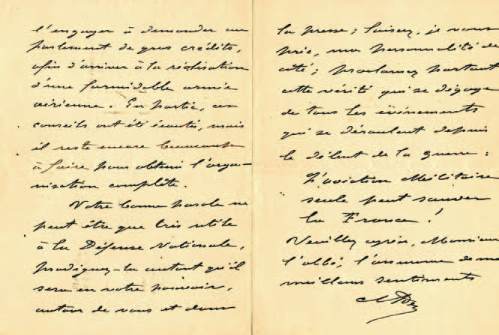 l'engager à demander au
parlement de gros crédits,
afin d'arriver à la réalisation
d'une formidable armée
aérienne. En partie, ces
conseils ont été écoutés, mais
il reste encore beaucoup
à faire pour obtenir l'orga-
nisation complète.
Votre bonne parole ne
peut être que très utile
à la Défense Nationale,
prodiguez-la autant qu'il
sera en votre pouvoir,
autour de vous et dans
la presse; laissez, je vous
prie, ma personnalité de
côté; proclamez partout
cette vérité qui se dégage
de tous les événements
qui se déroulent depuis
le début de la guerre:
L'aviation Militaire
seule peut sauver
la France!
Veuillez agréer, Monsieur
l'abbé, l'assurance de mes
meilleurs sentiments